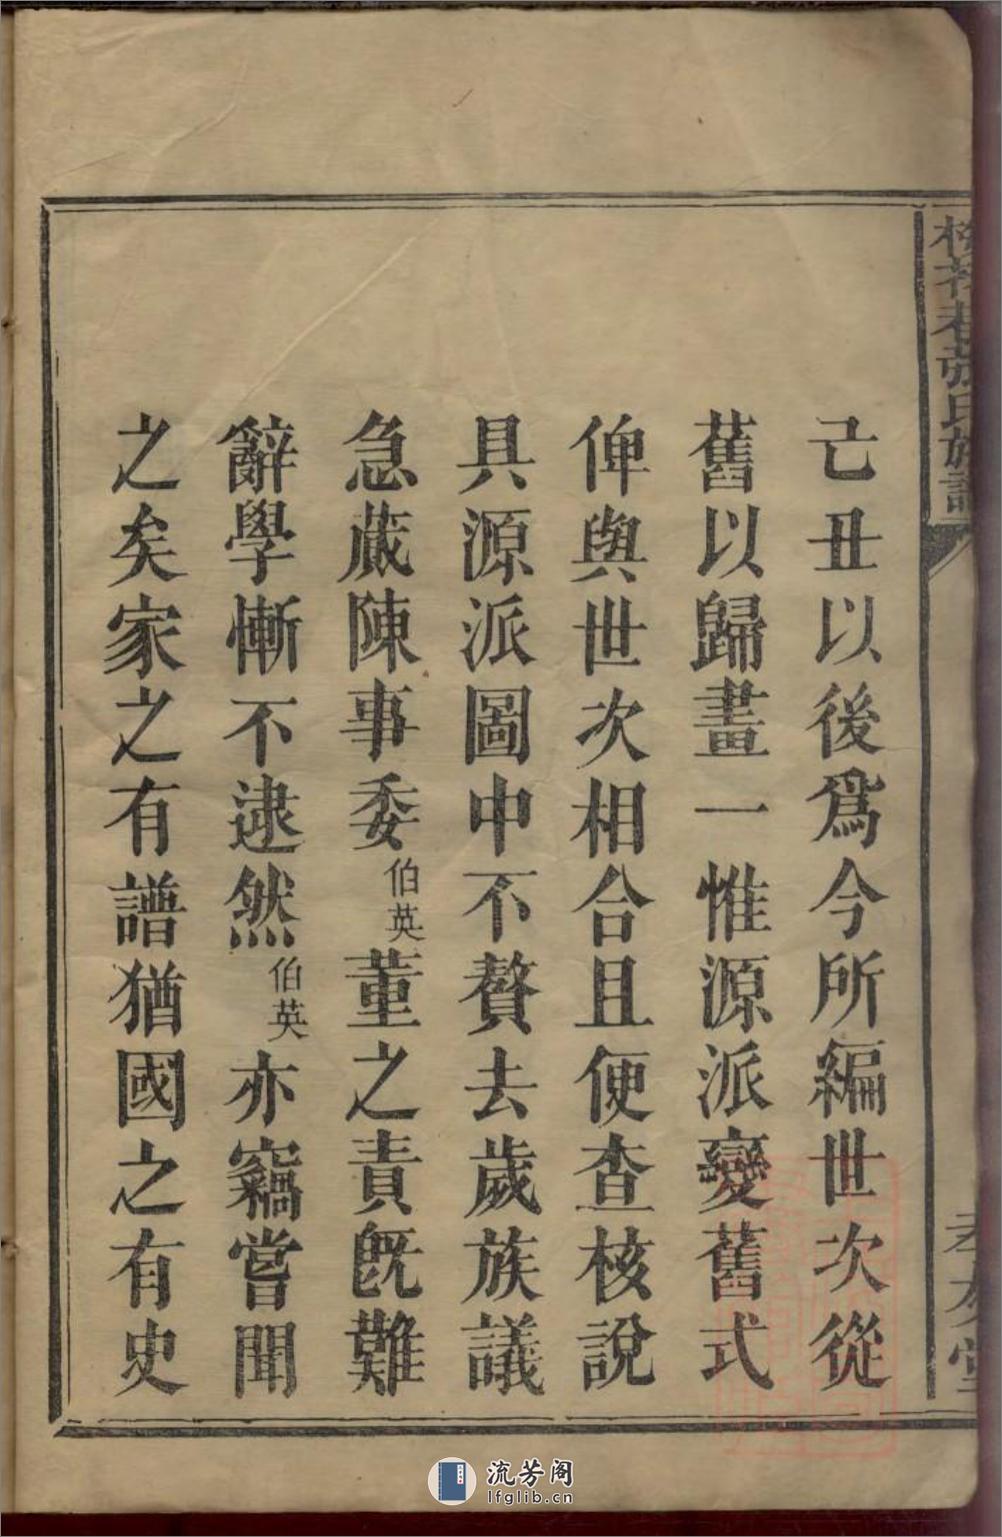 己丑以後爲今所編世次從
舊以歸畫一惟源派變舊式
俾與世次相合且便查核說
具源派圖中不贅去歲族議
急蕆陳事委伯英董之責旣難
辭學慚不逮然伯英亦竊嘗聞
之矣家之有譜猶國之有史
張氏族譜
孝友堂
流芳阁
lfglib.cn